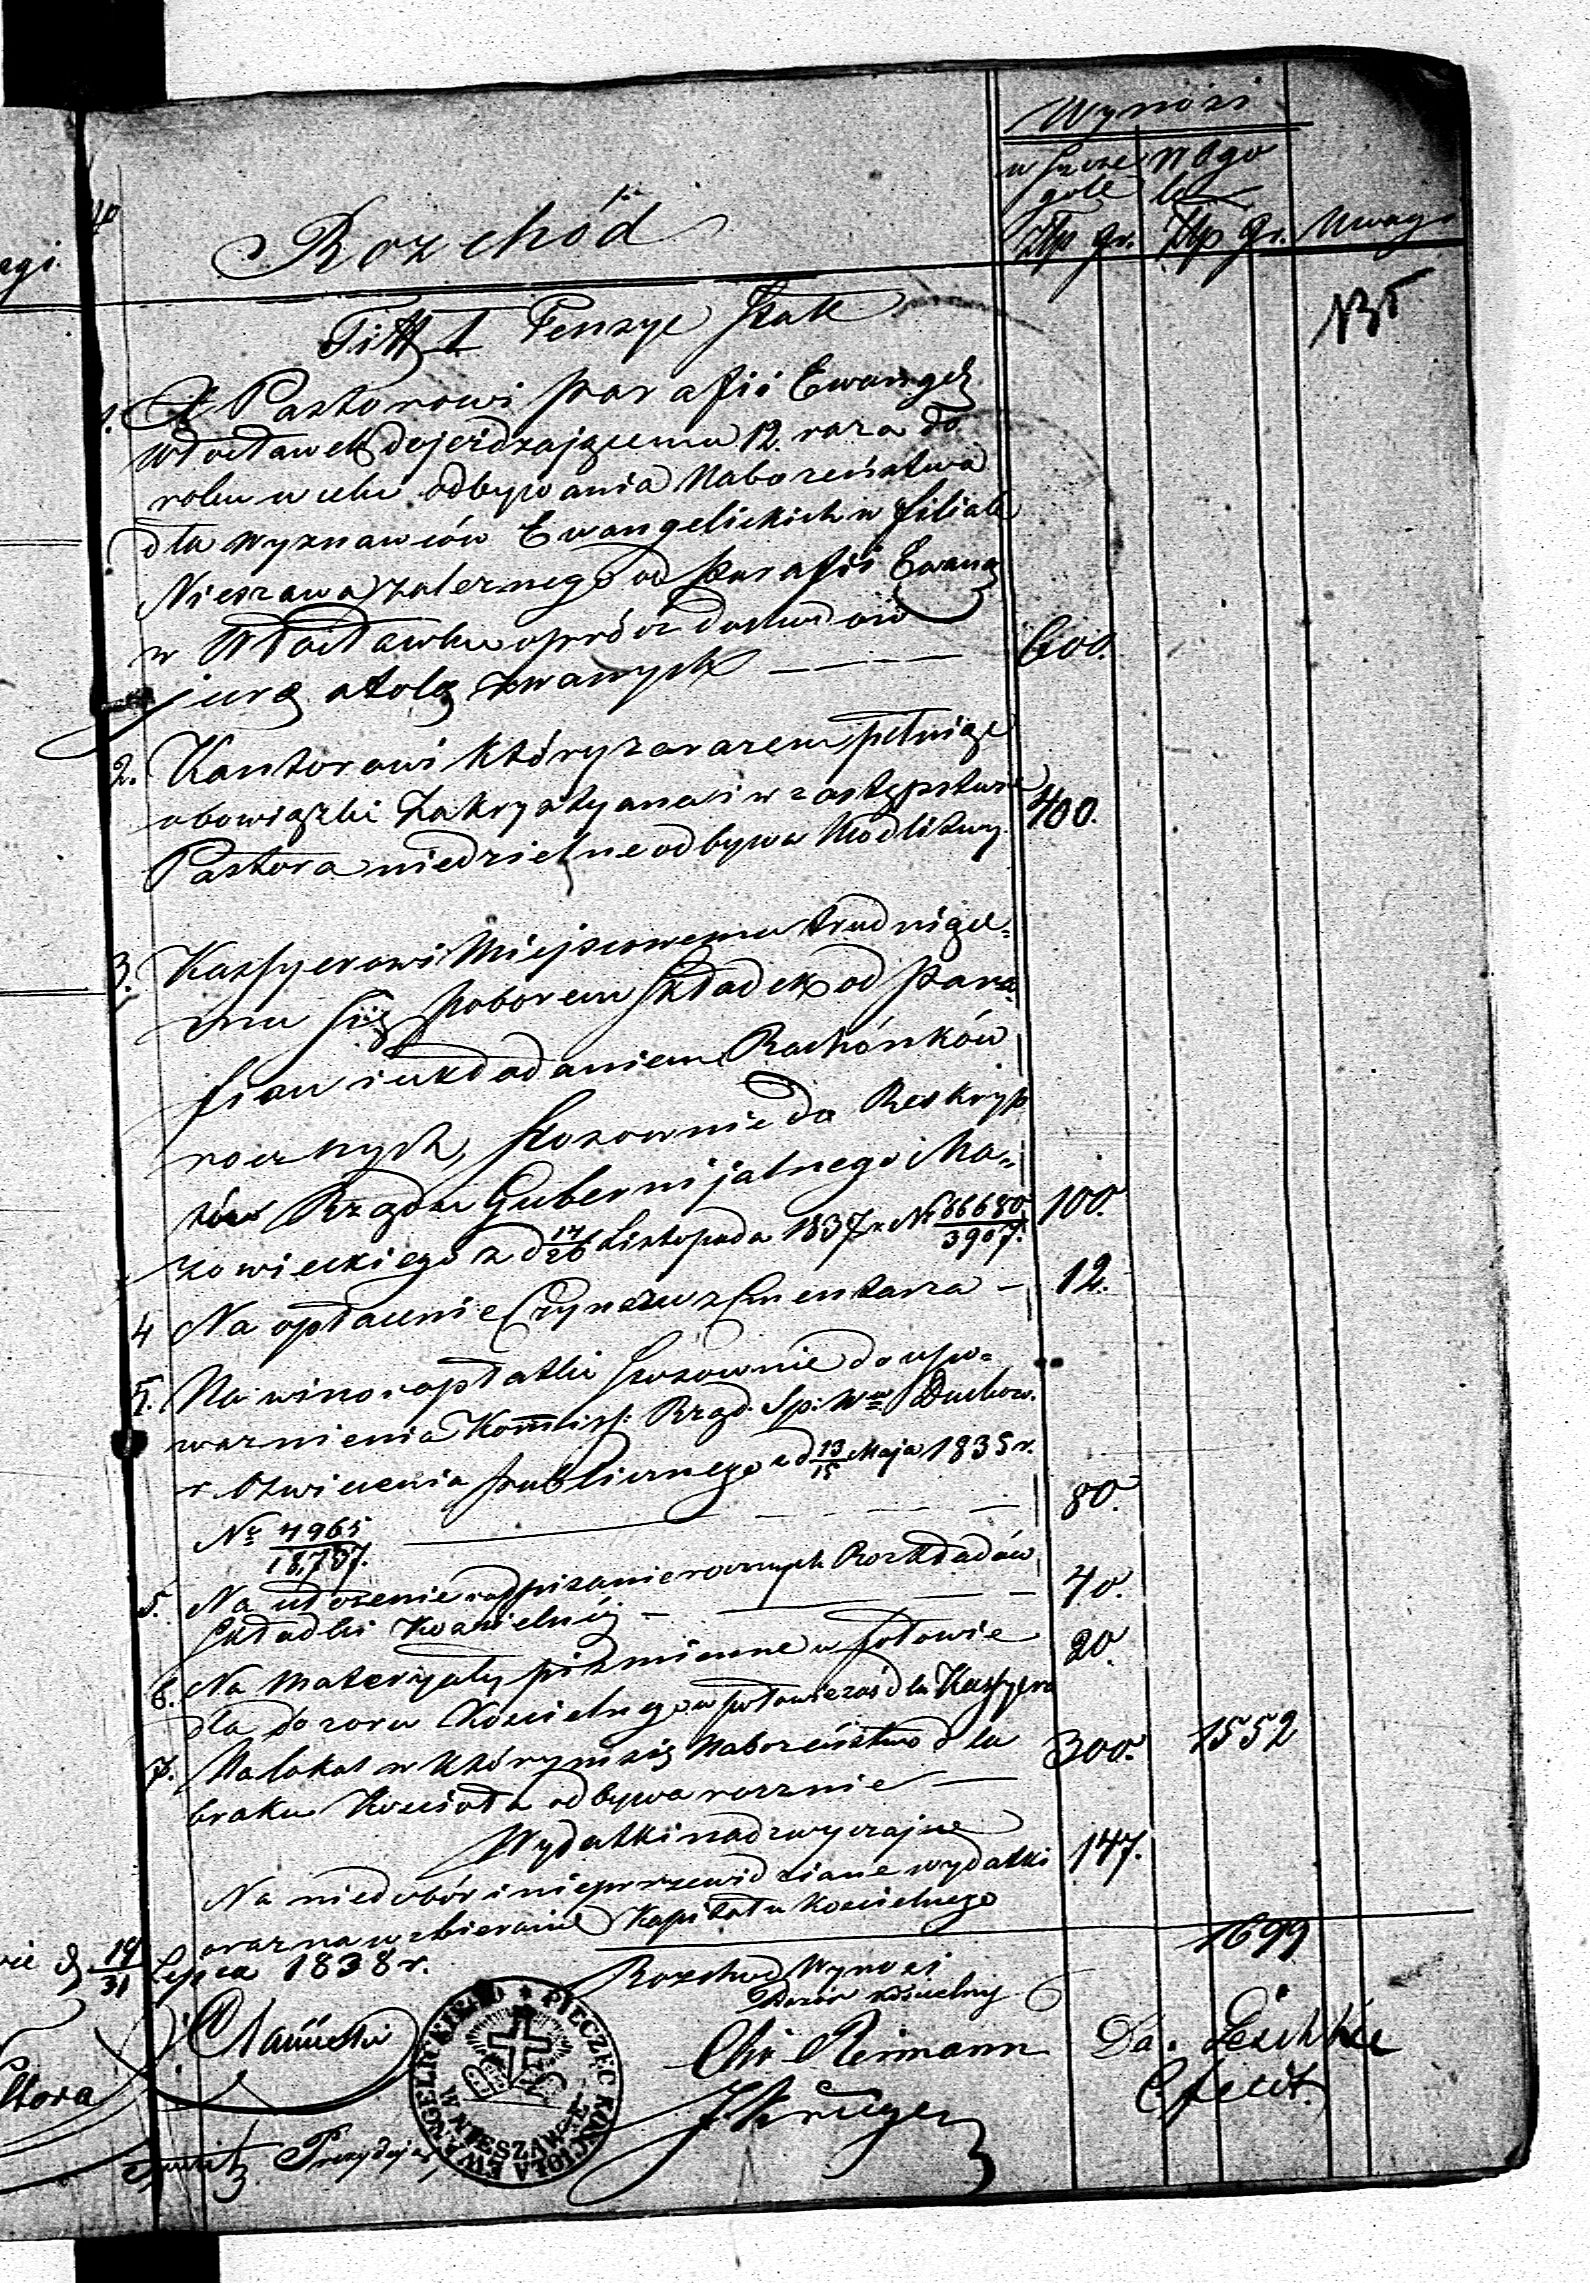 Wynosi
w szcze
gole
W Ogo
le
Złp gr. Złp gr. Uwagi
Rozchód
135
Titt 1. Pensye Stałe
1. Pastorowi parafii Ewangel.
Włocławek dojeżdzającemu 12. raza do
roku w celu odbywania Nabożeństwa
dla wyznawców Ewangelickich w filiale
Nieszawa zależnego od parafii Ewang
w Włocławku oprócz dochodów
jura stolę zwanych 600.
2. Kantorowi który zarazem pełniąc
obowiązki Zakrystyana i w zastępstwie
Pastora niedzielne odbywa Modlitwy. 400.
3. Kassyerowi Miejscowemu trudniące=
mu się poborem składek od para=
fian i układaniem Rachónków
rocznych, stosownie do Reskryp
tów Rządu Gubernijalnego Ma=
zowieckiego z d 14/26 Listopada 1837 r. Nr 66680/3907. 100.
4 Na opłacenie Czynszu z Cmentarza — 12.
5. Na wino i opłatki stosownie do upo=
ważnienia Kommiss: Rząd. Sp: Wn Duchow.
i Oświecenia publicznego z d 13/15 Maja 1835 r.
Nr 4965/18,707. 80.
5. Na ułożenie i odpisanie rocznych Rozkładów
składki Kościelnéj — 40.
6. Na Materyały piśmienne w połowie
dla dozoru Kościelnego w połowie zaś dla Kassyera 20.
7. Na lokal w którym się Nabożeństwo dla
braku Kościoła odbywa rocznie — 300. 1552
Wydatki nadzwyczajne
Na niedobór i nieprzewidziane wydatki 147.
oraz na uzbieranie Kapitału Kościelnego
1699
Rozchód Wynosi
Lipca 1838 r.
Dozór Kościelny
Chr Reimann
J. Krüger
Prezydujący
PIECZĘĆ KOŚCIOŁA EWANGELICKIEGO
W NIESZAWIE